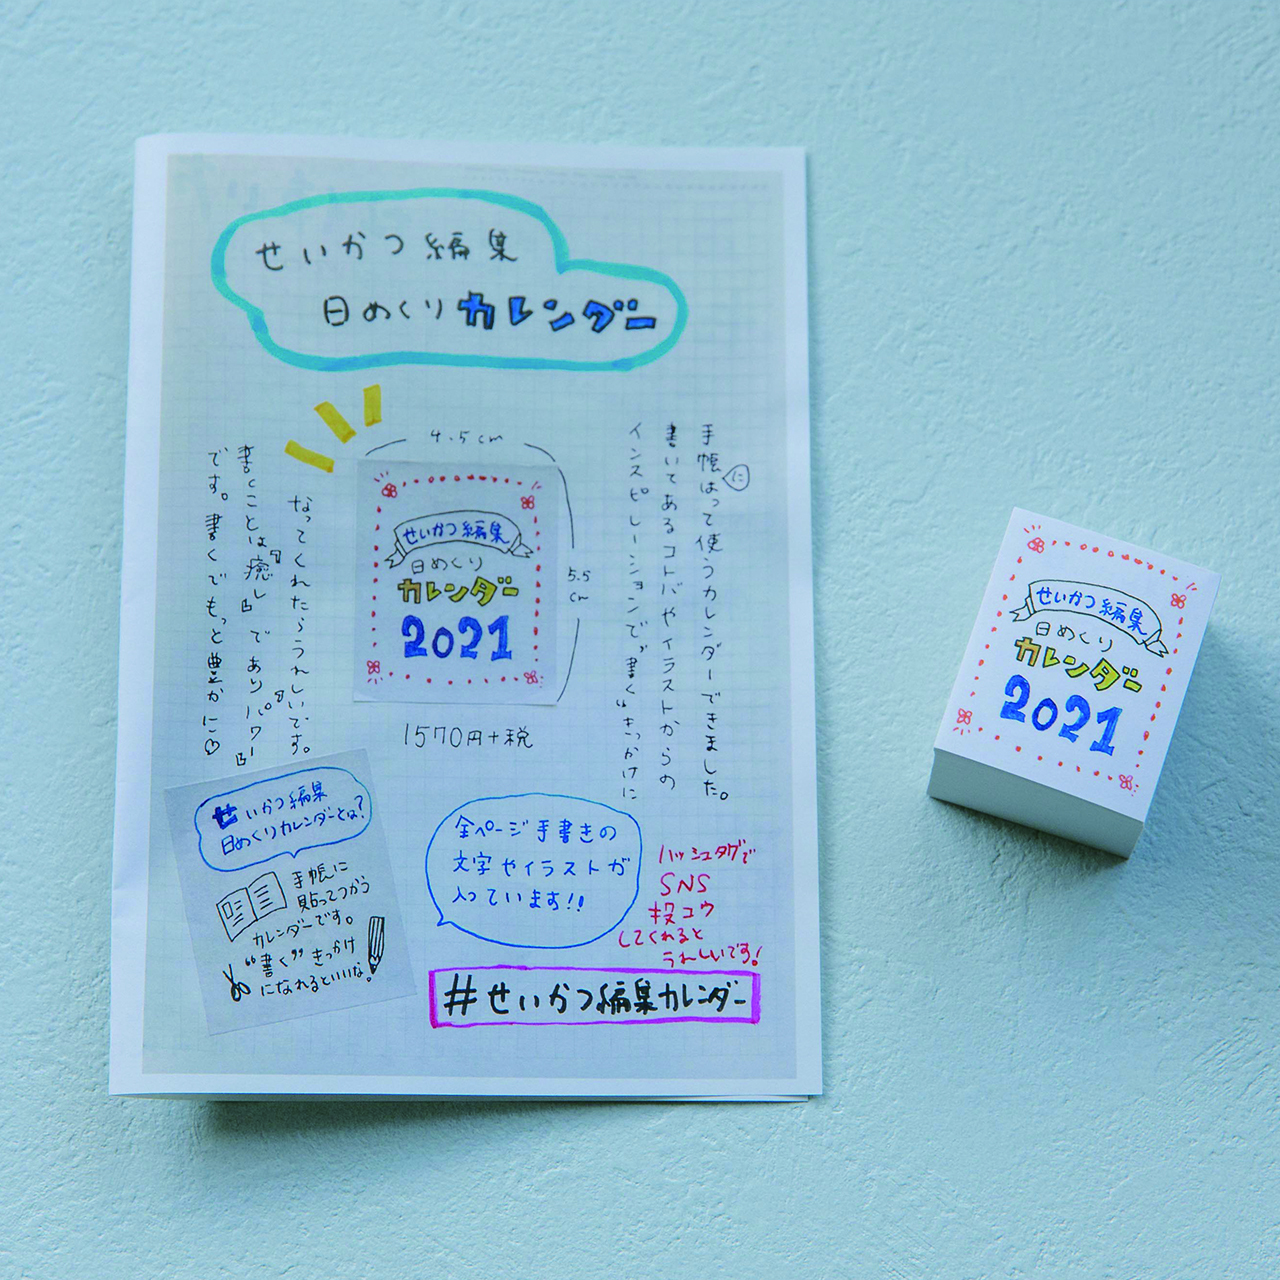 せいかつ編集
日めくりカレンダー
4.5cm
5.5
cm
せいかつ編集
日めくり
カレンダー
2021
1570円+税
手帳にはって使うカレンダーできました。
書いてあるコトバやイラストからの
インスピレーションで〝書く〟きっかけに
なってくれたらうれしいです。
書くことは『癒し』であり『パワー』
です。書くでもっと豊かに♡
せいかつ編集
日めくりカレンダーとは?
手帳に
貼ってつかう
カレンダーです。
“書く”きっかけ
になれるといいな。
全ページ手書きの
文字やイラストが
入っています!!
ハッシュタグで
SNS
投コウ
してくれると
うれしいです!
#せいかつ編集カレンダー
せいかつ編集
日めくり
カレンダー
2021